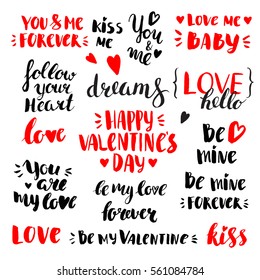 YOU & ME
FOREVER
kiss
me
You
& me
LOVE ME
BABY
follow
your
Heart
dreams
{LOVE}
hello
love
HAPPY
VALENTINE'S
DAY
Be
mine
You
are
my love
be my love
forever
Be mine
FOREVER
LOVE
Be my Valentine
kiss
shutterstock
IMAGE ID: 561084784
www.shutterstock.com